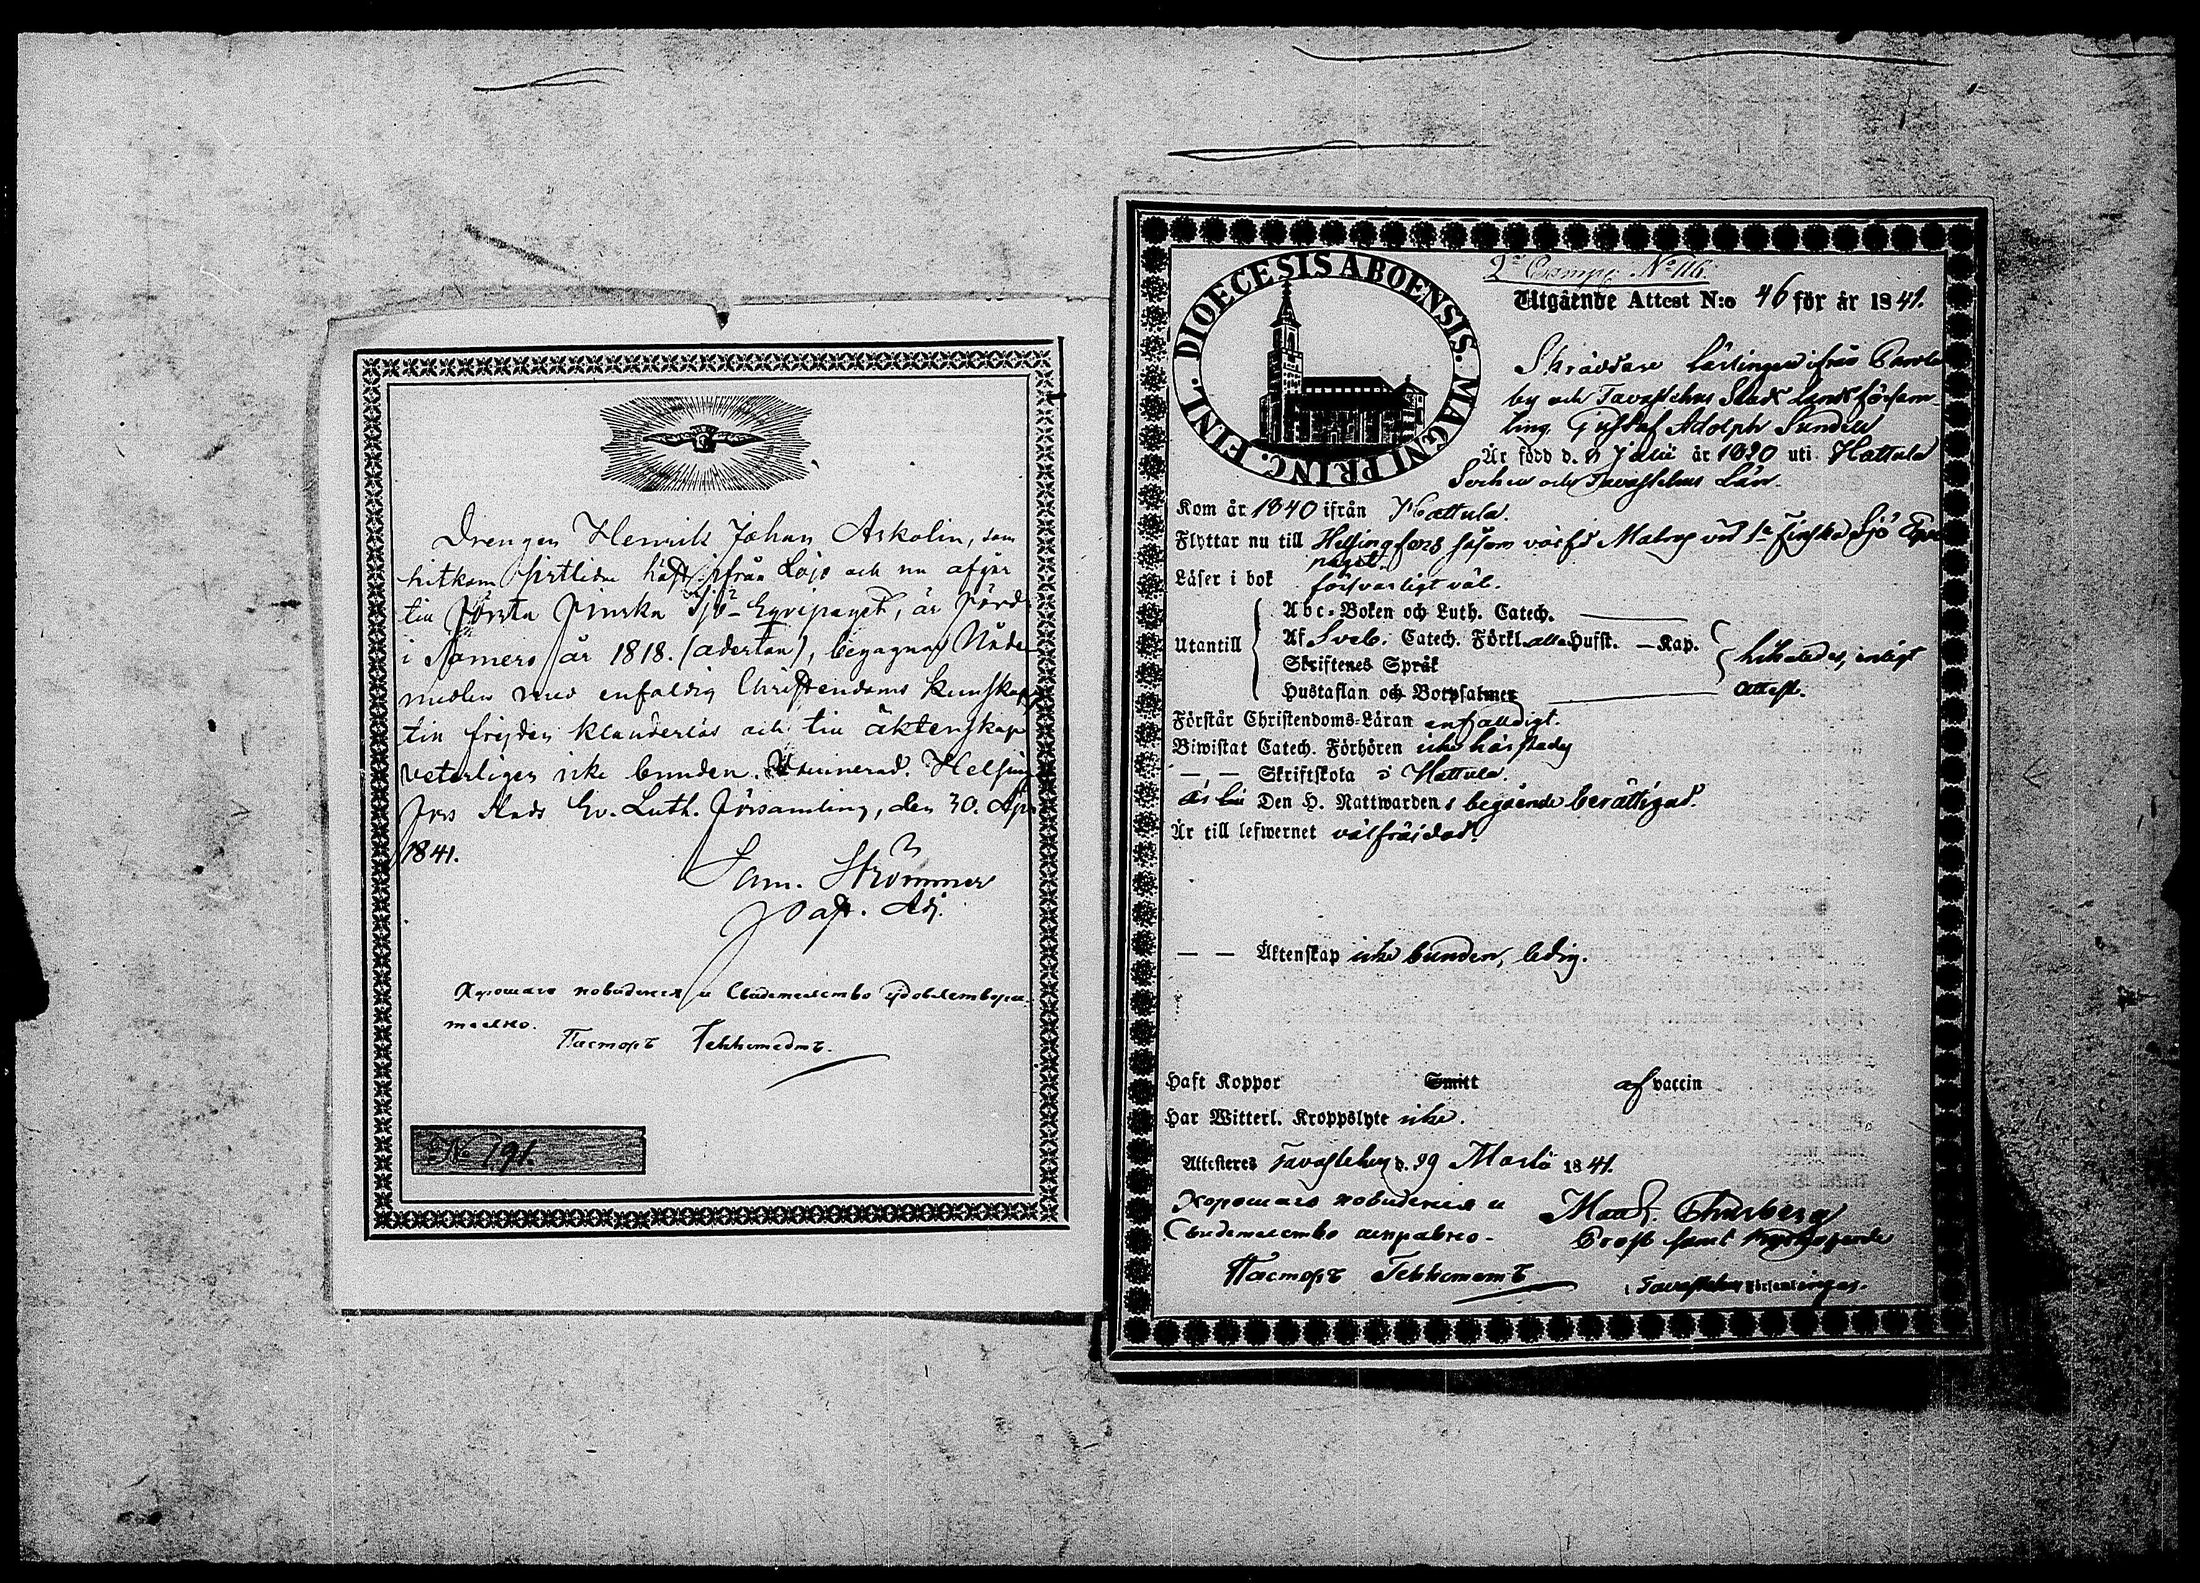 Drengen Henrik Johan Askolin, som
hitkom sistlidne höst ifrån Lojo och nu afgår
till Första Finska Sjö-Eqvipaget, är född
i Somero år 1818. (aderton), begagnar Nåde-
medlen med enfaldig Christendoms kunskap,
till frejden klanderlös och till äktenskap
veterligen icke bunden. Vaccinerad. Helsing-
fors Stads Ev. Luth. Församling, den 30. Apr.
1841.
Sam. Strömmer
Past. Adj.
Хорошаго поведенія и Свидетелство удовлетвори-
телно.
Пасторъ
No 191.
DIOECESIS ABOENSIS. MAGNI PRINC. FINL.
2a Comp. No 116.
Utgående Attest N:o 46 för år 1841.
Skräddare Lärlingen ifrån Parola
by och Tavastehus Stads Lands församling
Gustaf Adolph Sundell
Är född d. 8 Julii år 1820 uti Hattula
Socken och Tavastehus Län.
Kom år 1840 ifrån Hattula.
Flyttar nu till Helsingfors såsom värfd Matros vid 1a Finska Sjö Eqvi
paget.
Läser i bok försvarligt väl.
Abc-Boken och Luth. Catech.
Utantill Af Sveb. Catech. Förkl. alla Hufst. — Kap.
Skriftenes Språk
Hustaflan och Botpsalmer
likaledes, enligt
attest.
Förstår Christendoms-Läran enfaldigt.
Biwistat Catech. Förhören icke härstädes
— — Skriftskola i Hattula.
är till Den H. Nattwardens begående berättigad.
Är till lefwernet välfräjdad.
— — Äktenskap icke bunden, ledig.
Haft Koppor Smitt af vaccin
Har Witterl. Kroppslyte icke.
Attesteres Tavastehus d. 29 Martii 1841.
Хорошаго поведенія и
Свидетелство исправно.
Пасторъ
Prost samt Kyrkoherde
i Tavastehus Församlingar.